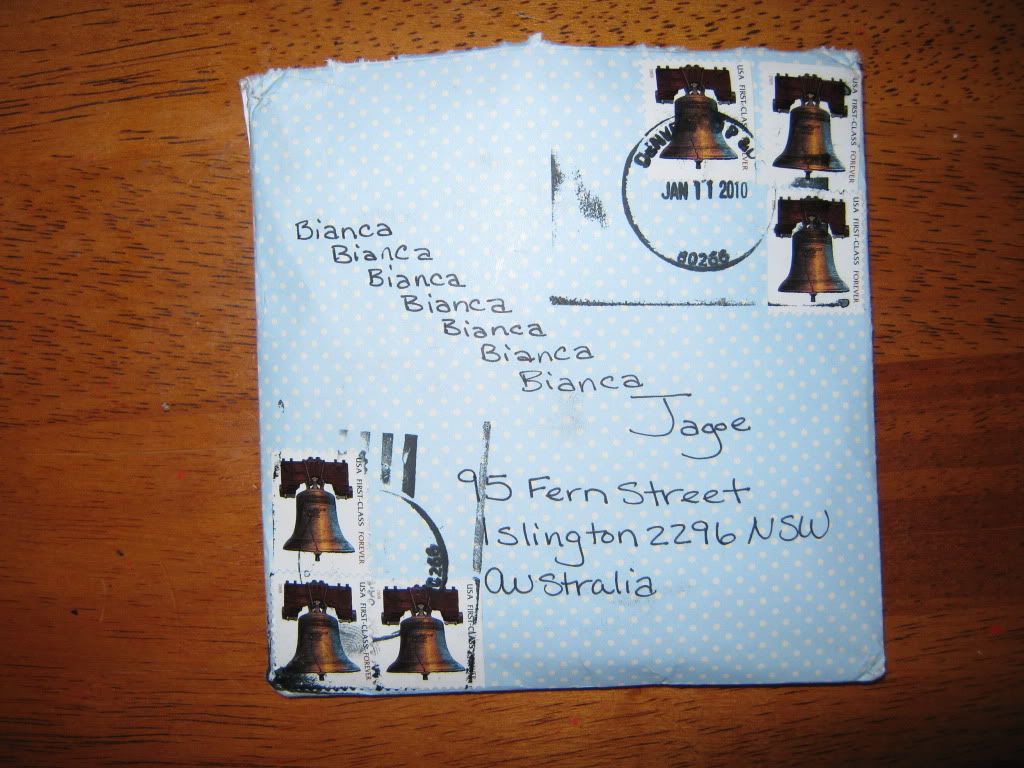 USA FIRST-CLASS FOREVER
USA FIRST-CLASS FOREVER
USA FIRST-CLASS FOREVER
JAN 11 2010
80266
Bianca
Bianca
Bianca
Bianca
Bianca
Bianca
Bianca
Jagoe
95 Fern Street
Islington 2296 NSW
Australia
USA FIRST-CLASS FOREVER
USA FIRST-CLASS FOREVER
USA FIRST-CLASS